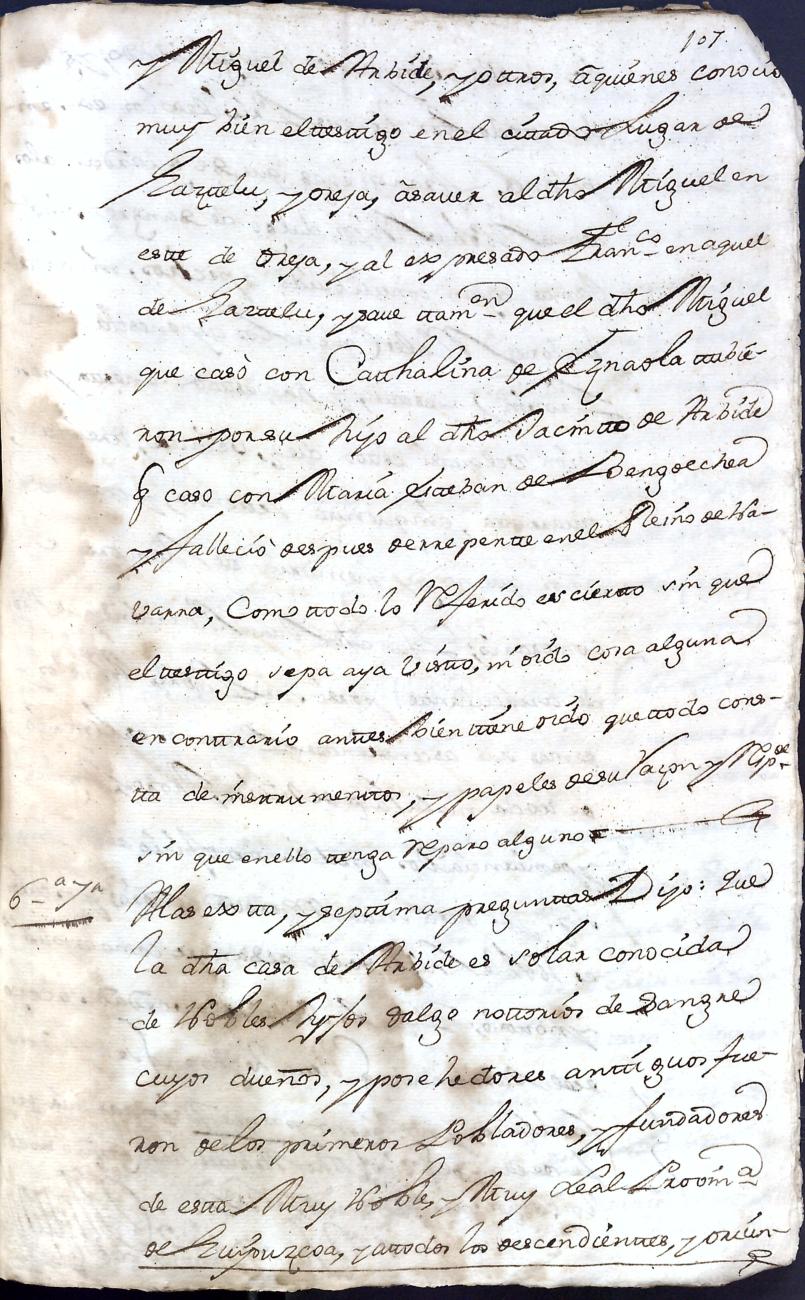 107
y Miguel de Arbide, y ottros, a quienes conocio
muy bien el testtigo en el cittado Lugar de
Gaztelu, y oreja, a saver al dho Miguel en
este de Oreja, y al expresado Franco en aquel
de Gaztelu, y save ttamen que el dho Miguel
que casò con Catthalina de Eznaola ttubie-
ron por su hijo al dho Jacintto de Arbide
q caso con Maria Esteban de Bengoechea
y fallecio despues de rrepentte en el Reino de Na-
varra, Como ttodo lo Referido es ciertto sin que
el testtigo sepa aya visto, ni oido cosa alguna
en conttrario anttes bien ttiene oido que ttodo cons-
tta de insttrumenttos, y papeles de su Razon y
sin que en ello ttenga Reparo alguno
6-a 7a
A las sextta, y septtima preguntas Dijo: Que
la dha casa de Arbide es solar conocida
de Nobles hijos dalgo nottorios de Sangre
cuyos dueños, y posehedores anttiguos fue-
ron de los primeros Pobladores, y fundadores
de estta Muy Noble, y Muy Leal Provina
de Guipuzcoa, y a ttodos los descendienttes, y oriun-